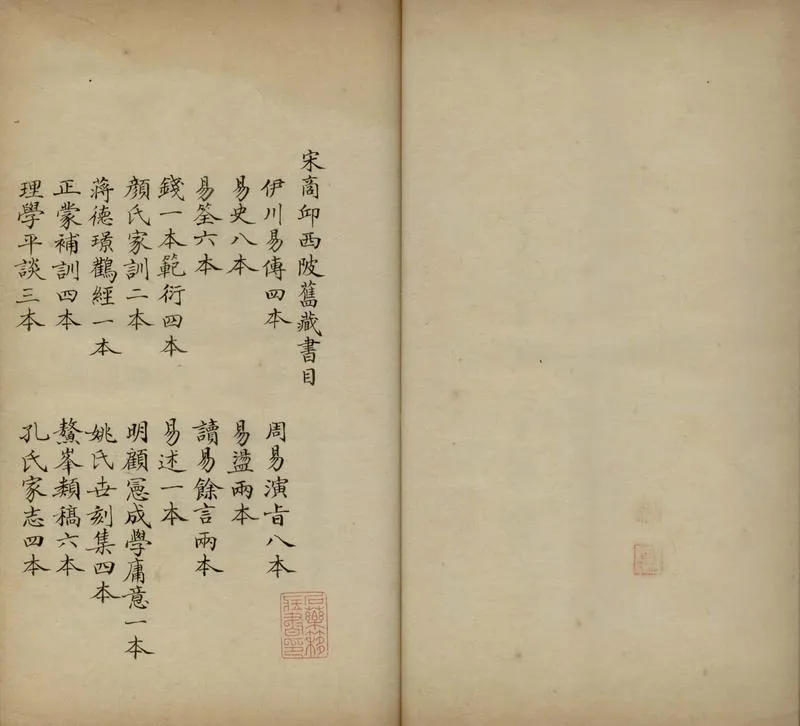 宋商邱西陂舊藏書目
伊川易傳四本
周易演旨八本
易史八本
易盪兩本
易筌六本
讀易餘言兩本
錢一本範衍四本
易述一本
顏氏家訓二本
明顧憲成學庸意一本
蔣德璟鶴經一本
姚氏世刻集四本
正蒙補訓四本
鰲峯類稿六本
理學平談三本
孔氏家志四本